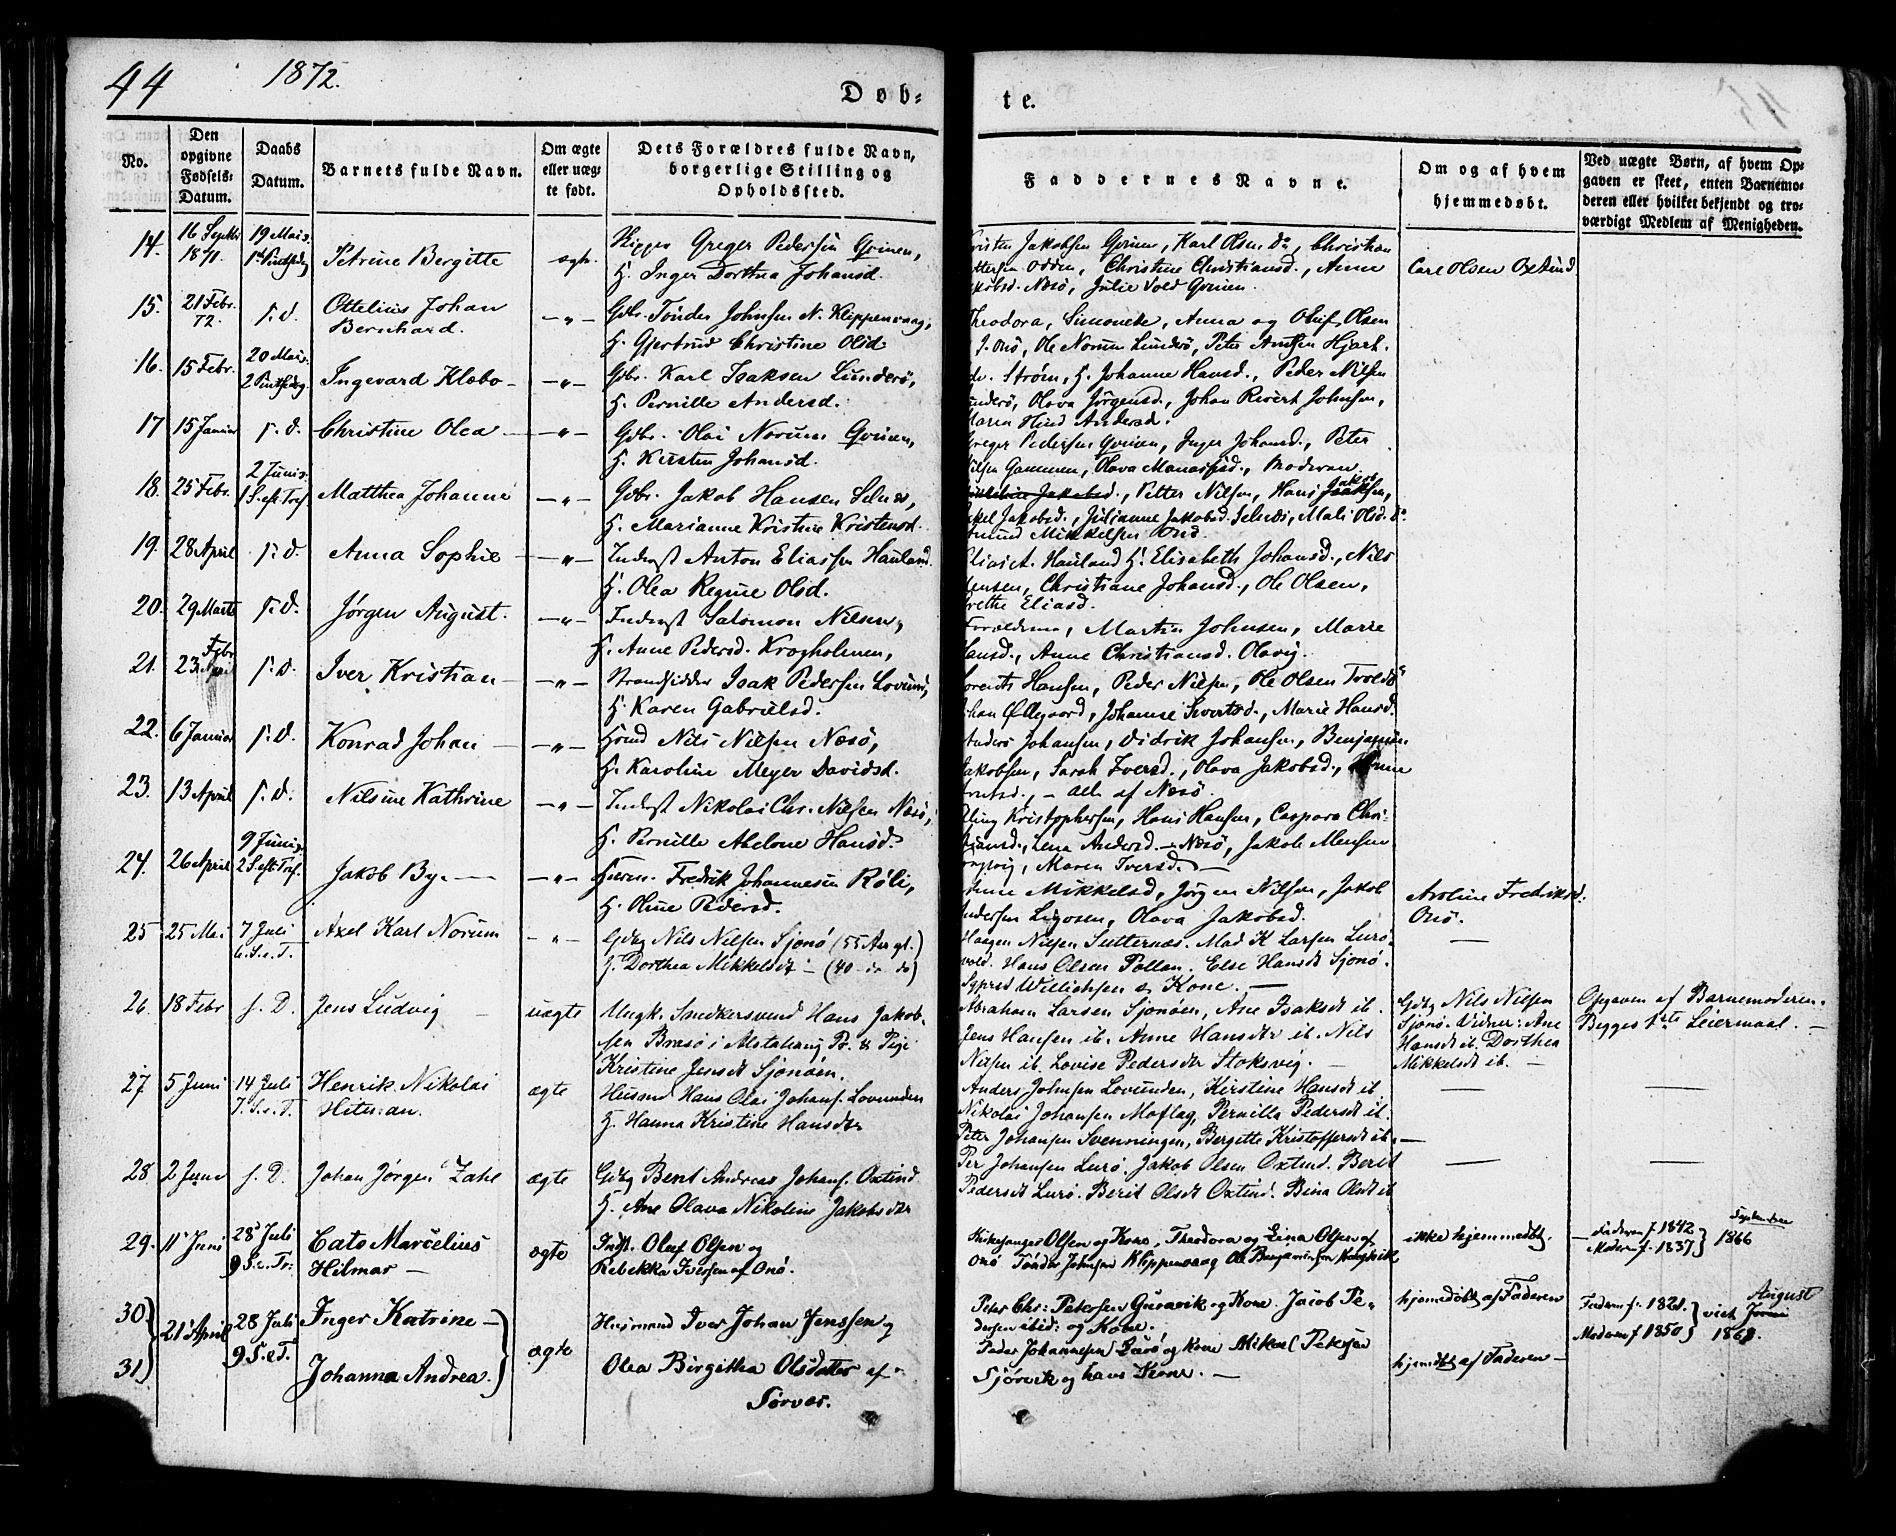 44
1872.
Døb-
te.
No.
Den opgivne Fødsels-Datum.
Daabs Datum.
Barnets fulde Navn.
Om ægte eller uægte født.
Dets Forældres fulde Navn, borgerlige Stilling og Opholdssted.
Faddernes Navne.
Om og af hvem hjemmedøbt.
Ved uægte Børn, af hvem Opgaven er skeet, enten Barnemoderen eller hvilket bekjendt og troværdigt Medlem af Menigheden.
14. 16 Septbr 1871. 19 Mai Petrine Bergitte ægte Greger Pedersen Qvinen,
H. Inger Dorthea Johansd.
Jakobsen Qvinen, Karl Olsen do, Christian
Odden, Christine Christiansd., Anne
Nesö, Julie Vold Qvinen.
Carl Olsen Oxtind
15. 21 Febr. 72. s. d. Ottelius Johan Bernhard. —"— Gbr. Tönder Johnsen N. Klippenvaag,
H. Gjertrud Christine Olsd.
Theodora, Simonette, Anna og Oluf Olsen
Onö, Ole Norum Lunderö, Peter Hjart
16. 15 Febr. 20 Mai 2 Pintsedag Ingevard Klebo —"— Gbr. Karl Isaksen Lunderö,
H. Pernille Andersd.
Strøm, H. Johanne Hansd., Peder Nilsen
Olava Jørgensd., Johan Rivert Johnsen,
Maren Andersd.
17 15 Januar s. d. Christine Olea —"— Gbr. Olai Norum Qvinen,
H. Kirsten Johansd.
Greger Pedersen Qvinen, Inger Johansd., Peter
Nilsen Gammen, Olava Manassesd., Moderen
18. 25 Febr. 2 Juni 1 S. eft Tref. Matthea Johanne —"— Gbr. Jakob Hansen Selnes,
H. Marianne Kristine Kristensd.
Jakobsd., Petter Nilsen, Hans
Jakobsd., Julianne Jakobsd. Selnes, Mali Olsd. do
Amund Mikkelsen
19. 28 April s. d. Anna Sophie —"— Inderst Anton Eliassen Hauland
H. Olea Regine Olsd.
Elias A. Hauland H. Elisabeth Johansd., Nils
Jensen, Christiane Johansd., Ole Olsen,
Grethe Eliasd.
20. 29 Marts s. d. Jørgen August. —"— Inderst Salomon Nilsen,
H. Anne Pedersd. Krogholmen,
Forældrene, Martin Johnsen, Marie
Hansd., Anne Christiansd. Olavig.
21. 23 Febr s. D. Iver Kristian —"— Strandsidder Isak Pedersen Lovund,
H. Karen Gabrielsd.
Lorents Hansen, Peder Nilsen, Ole Olsen
Johan Ødegaard, Johanne Sivertsd., Marie Hansd.
22. 6 Januar s. d. Konrad Johan —"— Husmd Nils Nilsen Nesö,
H. Karoline Meyer Davidsd.
Anders Johansen, Didrik Johansen, Benjamin
Jakobsen, Sarah Iversd., Olava Jakobsd., Anne
— alle af Nesö.
23. 13 April s. d. Nilsine Kathrine —"— Inderst Nikolai Chr. Nilsen Nesö,
H. Pernille Abelone Hansd.
Eling Kristophersen, Hans Hansen, Caspara Chri-
stiansd., Lena Andersd. — Nesö, Jakob Mensen
Maren Iversd. —
24. 26 April 9 Juni 2 S. eft. Tref. Jakob By. — —"— Fredrik Johannesen Röli,
H. Oline Pedersd.
Anne Mikkelsd, Jørgen Nilsen, Jakob
Andersen Ligosen, Olava Jakobsd.
Aroline Fredriksd.
Onö.
25 25 Mai 7 Juli 6. S. e. T. Axel Karl Norum —"— Gdbg Nils Nilsen Sjonö (55 Aar gl.)
H. Dorthea Mikkelsdt — (40 — do)
Haagen Nilsen Sutternæs. Mad K Larsen Lurö-
vold. Hans Olsen Pollan. Else Hansdt Sjonö.
Sivert Willichsen & Kone. —
26. 18 Febr s. D. Jens Ludvig — uægte Ungk. Snedkersvend Hans Jakob-
sen Brasö i Alstahaug P. & Pige
Kristine Jensdt Sjonöen.
Abraham Larsen Sjonöen, Ane Isaksdt ib.
Jens Hansen ib. Anne Hansdtr ib. Nils
Nilsen ib. Lovise Pedersdtr Stoksvig. —
Gdbg Nils Nilsen
Sjonö. Vidner: Ane
Hansdt ib. Dorthea
Mikkelsdt ib. —
Opgaven af Barnemoderen.
Begges 1ste Leiermaal. —
27 5 Juni 14 Juli 7. S. e. T. Henrik Nikolai Hitman. ægte Husmd Hans Olai Johans. Lovunden
H. Hanna Kristine Hansdtr
Anders Johnsen Lovunden, Kirstine Hansdt ib.
Nikolai Johansen Moflag, Pernilla Pedersdt ib.
Peter Johansen Svenningen, Bergitte Kristoffersdt ib. —
28 2 Juni s. D. Johan Jörgen Zahl ægte Gdbg Bent Andreas Johans. Oxtind
H. Ane Olava Nikoline Jakobsdtr
Per Johansen Lurö. Jakob Olsen Oxtind. Berit
Pedersdt Lurö. Berit Olsdt Oxtind. Bina Olsdt ib
29. 11' Juni 28' Juli 9 S. e. Tr: Cato Marcelius Hilmar — ægte Indst. Oluf Olsen og
Rebekka Iversen af Onö.
Kirkesanger Olsen og Kone, Theodora og Lina Olsen af
Onö Tönder Johnsen Klippenvaag Ole Benjaminsen
ikke hjemmedøbt.
— Faderen f. 1842
Moderen f. 1837} September 1866
30) 31) 21' April 28 Juli 9 S. e. T. Inger Katrine —
Johanna Andrea. ægte Husmand Iver Johan Jenssen og
Olea Birgitha Olsdatter af
Sørvær.
Peter Chr: Petersen Guravik og Kone Jacob Pe-
dersen ibid: og Kone.
Peder Johannesen Lurö og Kone Mikal Petersen
Sjörvik og hans Kone. —
hjemedöbt af Faderen
hjemdöbt af Faderen —
Faderen f. 1821.
Moderen f 1850} viet August
1868.